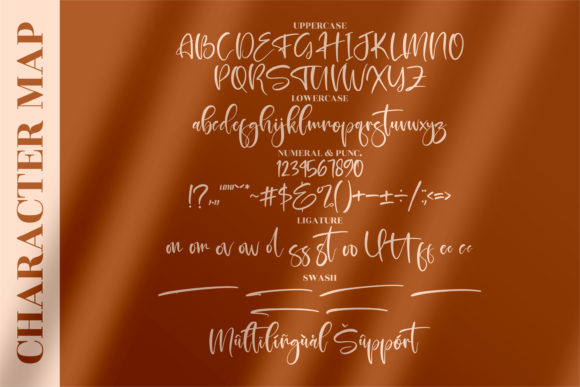 CHARACTER MAP
UPPERCASE
ABCDEFGHIJKLMNO
PQRSTUVWXYZ
LOWERCASE
abcdefghijklmnopqrstuvwxyz
NUMERAL & PUNC.
1234567890
LIGATURE
SWASH
Múltilíñgùàl Šûppórt